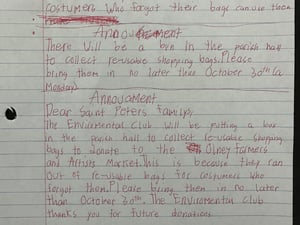 costumers Who forgot their bags can use them
Annoucement
There Will be a bin in the parish hall
to collect re-usable shopping bags. Please
bring them in no later than October 30th (a
Monday)
Annoucment
Dear Saint Peters Family,
The Enviromental Club Will be putting a bin
in the parish hall to collect re-usable shopping
bags to donate to the Olney farmers
and Artists Market. This is because they ran
out of re-usable bags for costumers who
forgot them. Please bring them in no later
than October 30th. The Enviromental Club
thanks you for future donations.